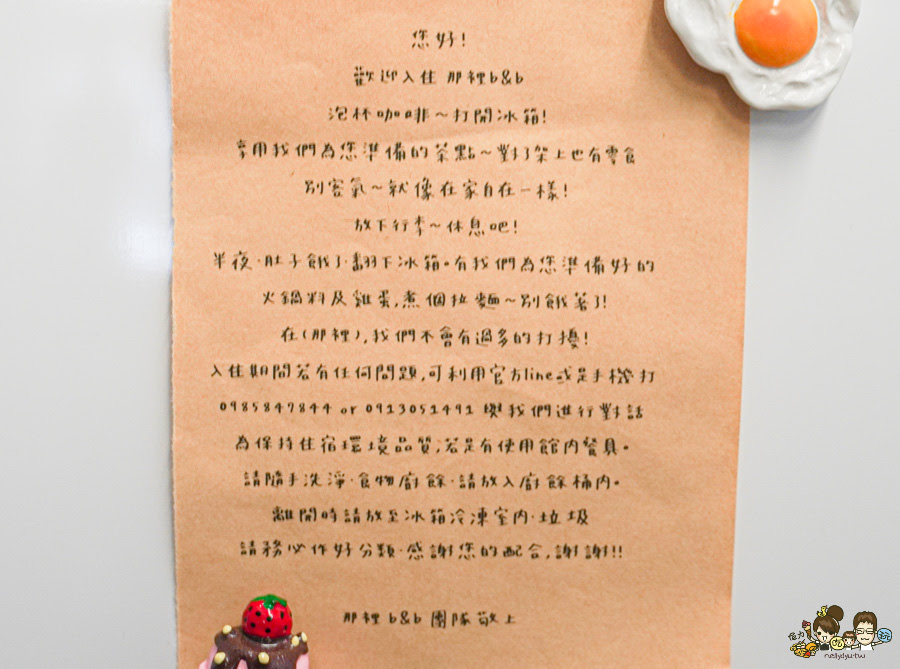 您好!
歡迎入住 那裡b&b
泡杯咖啡~打開冰箱!
享用我們為您準備的茶點~對了架上也有零食
別客氣~就像在家自在一樣!
放下行李~休息吧!
半夜·肚子餓了·翻下冰箱。有我們為您準備好的
火鍋料及雞蛋,煮個拉麵~別餓著了!
在(那裡),我們不會有過多的打擾!
入住期間若有任何問題,可利用官方line或是手機打
0985847844 or 0913051491 與我們進行對話
為保持住宿環境品質;若是有使用館內餐具。
請隨手洗淨·食物廚餘·請放入廚餘桶內。
離開時請放至冰箱冷凍室內·垃圾
請務必作好分類·感謝您的配合,謝謝!!
那裡 b&b 團隊敬上
nellydyu.tw